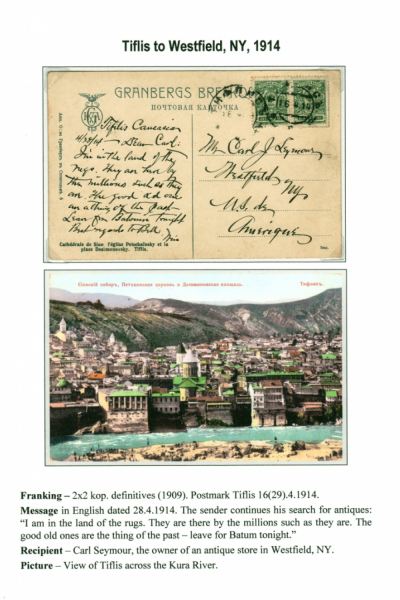 Tiflis to Westfield, NY, 1914
GRANBERGS BRE
ПОЧТОВАЯ КАРТОЧКА
Tiflis Caucasia
4/28/14
Dear Carl:
I'm in the land of the
rugs. They are here by
the millions such as they
are. The good old ones
are a thing of the past—
Leave for Batoum tonight
Best regards to
Mr Carl J. Seymour
Westfield
N.Y.
U.S. de
Amerique
Cathédrale de Sion l'église Petschalnsky et la
place Doutmenovsky. Tiflis.
Сіонскій соборъ,
церковь, и
площадь.
Тифлисъ.
Franking – 2x2 kop. definitives (1909). Postmark Tiflis 16(29).4.1914.
Message in English dated 28.4.1914. The sender continues his search for antiques:
"I am in the land of the rugs. They are there by the millions such as they are. The
good old ones are the thing of the past – leave for Batum tonight."
Recipient – Carl Seymour, the owner of an antique store in Westfield, NY.
Picture – View of Tiflis across the Kura River.